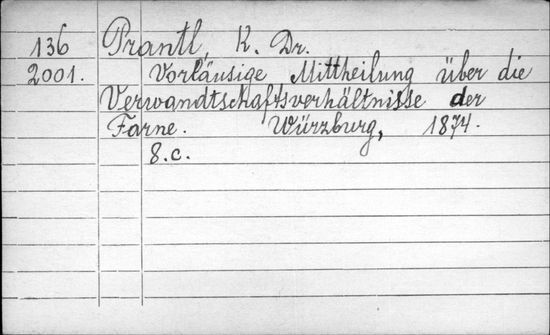 136 Prantl, K. Dr.
2001. Vorläusige Mittheilung über die
Verwandtschaftsverhältnisse der
Farne. Würzburg, 1874.
8.c.